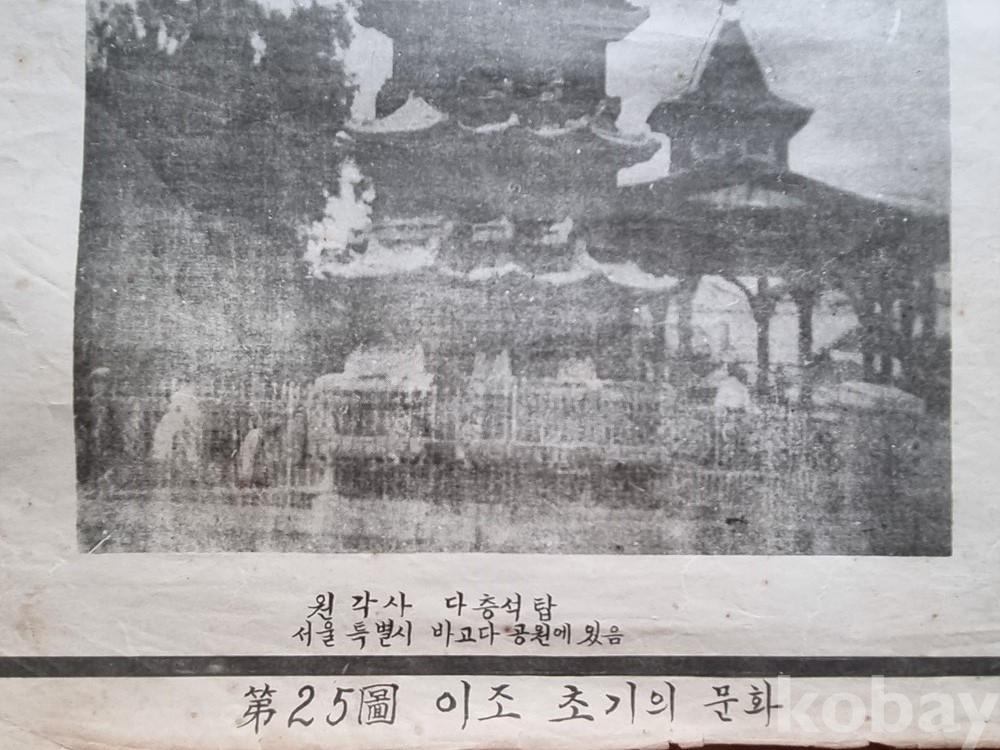 원각사 다층석탑
서울 특별시 바고다 공원에 있음
第25圖 이조 초기의 문화
kobay